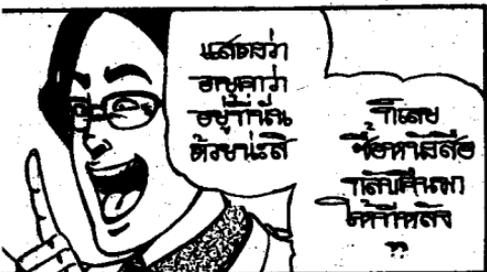 แสดงว่า
อยู่ที่นั่น
ด้วยน่ะสิ
ก็เลย
ซื้อหนังสือ
กลับคืนมา
ได้ทีหลัง